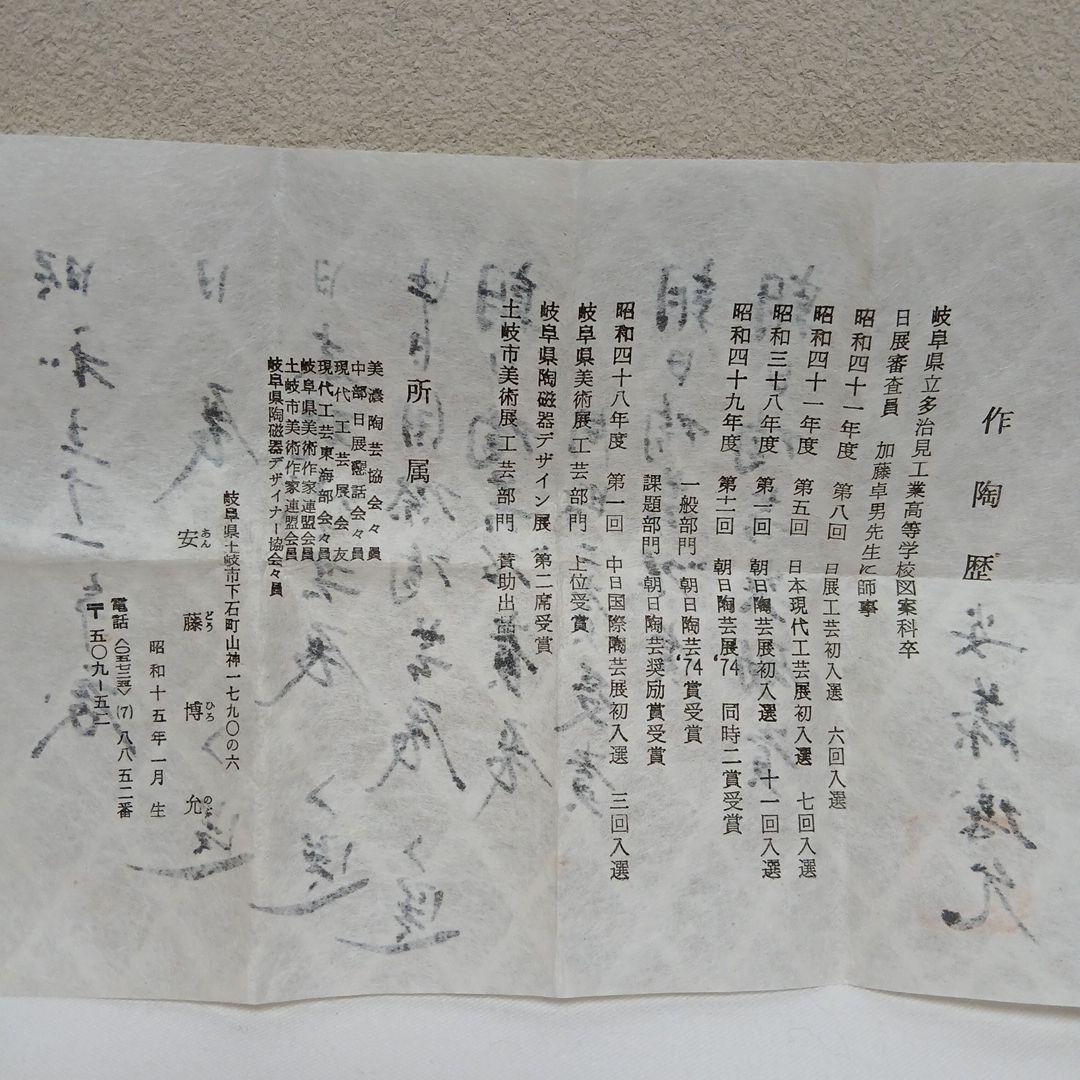 作陶歴
岐阜県立多治見工業高等学校図案科卒
日展審査員　加藤卓男先生に師事
昭和四十一年度　第八回　日展工芸初入選　六回入選
昭和四十一年度　第五回　日本現代工芸展初入選　七回入選
昭和三十八年度　第一回　朝日陶芸展初入選　十一回入選
昭和四十九年度　第十二回　朝日陶芸展'74　同時二賞受賞
一般部門　朝日陶芸'74賞受賞
課題部門　朝日陶芸奨励賞受賞
昭和四十八年度　第一回　中日国際陶芸展初入選　三回入選
岐阜県美術展　工芸部門　上位受賞
岐阜県陶磁器デザイン展　第二席受賞
土岐市美術展　工芸部門　賛助出品
所属
美濃陶芸協会々員
中部日展懇話会々員
現代工芸展会友
現代工芸東海部会々員
岐阜県美術作家連盟会員
土岐市美術作家連盟会員
岐阜県陶磁器デザイナー協会々員
岐阜県土岐市下石町山神一七九〇の六
安藤博允
あん　どう　ひろ　のぶ
昭和十五年一月生
電話〈〇五七二五〉(7)八八五二番
〒五〇九ー五二